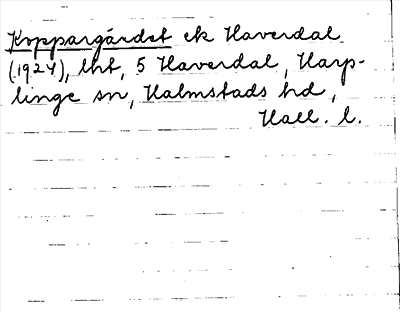 Koppargårdet ek Haverdal
(1924), lht, 5 Haverdal, Harp-
linge sn, Halmstads hd,
Hall. l.